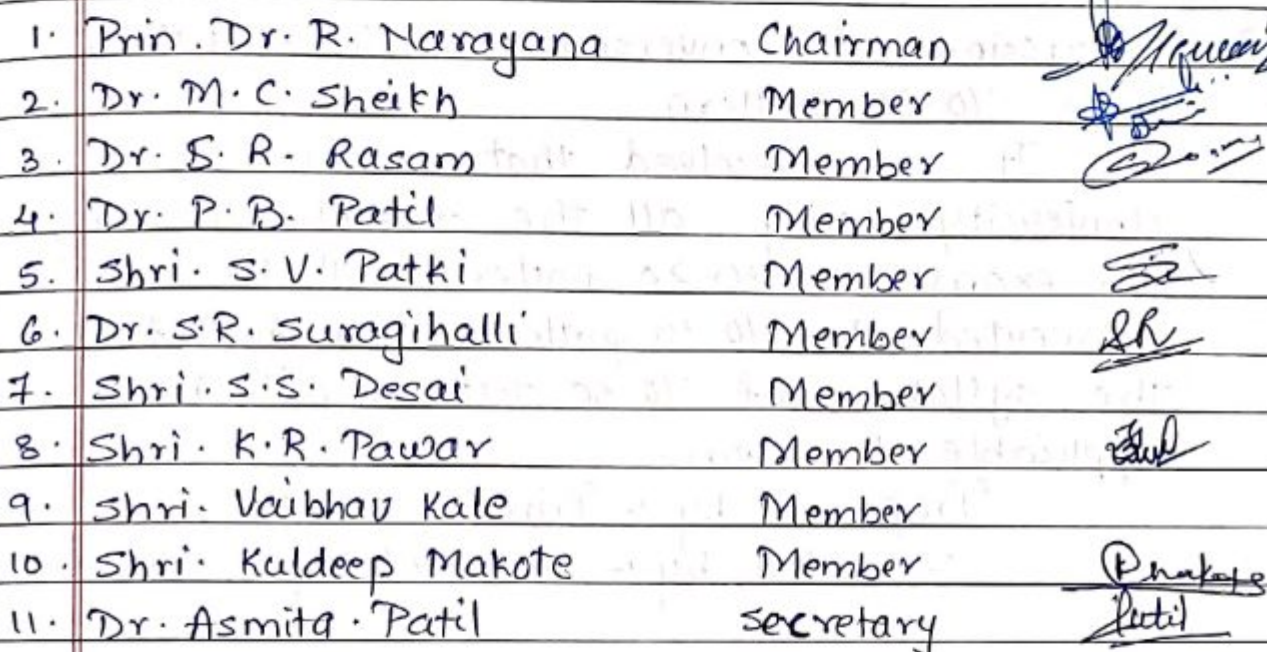 1. Prin. Dr. R. Narayana Chairman
2. Dr. M. C. Sheikh Member
3. Dr. S. R. Rasam Member
4. Dr. P. B. Patil Member
5. Shri. S. V. Patki Member
6. Dr. S.R. Suragihalli Member SR
7. Shri. S.S. Desai Member
8. Shri. K.R. Pawar Member
9. Shri. Vaibhav Kale Member
10. Shri. Kuldeep Makote Member
11. Dr. Asmita. Patil secretary Patil